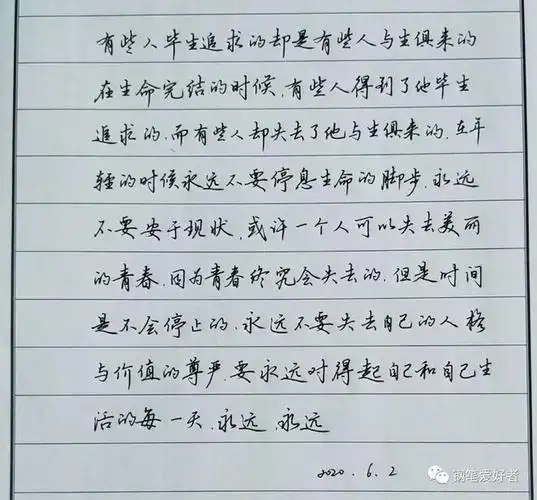 有些人毕生追求的却是有些人与生俱来的
在生命完结的时候,有些人得到了他毕生
追求的,而有些人却失去了他与生俱来的,在年
轻的时候永远不要停息生命的脚步,永远
不要安于现状,或许一个人可以失去美丽
的青春,因为青春终究会失去的,但是时间
是不会停止的,永远不要失去自己的人格
与价值的尊严,要永远对得起自己和自己生
活的每一天,永远,永远
2020.6.2
钢笔爱好者